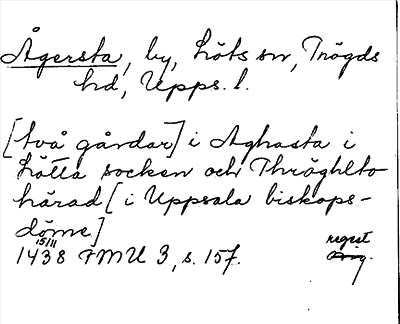 Ågersta, by, Löts sn, Trögds
hd, Upps. l.
[två gårdar] i Aghasta i
Lötta socken och Thröghlto
härad [i Uppsala biskops-
döme]
15/11
1438 FMU 3, s. 157.
regest
Orig.